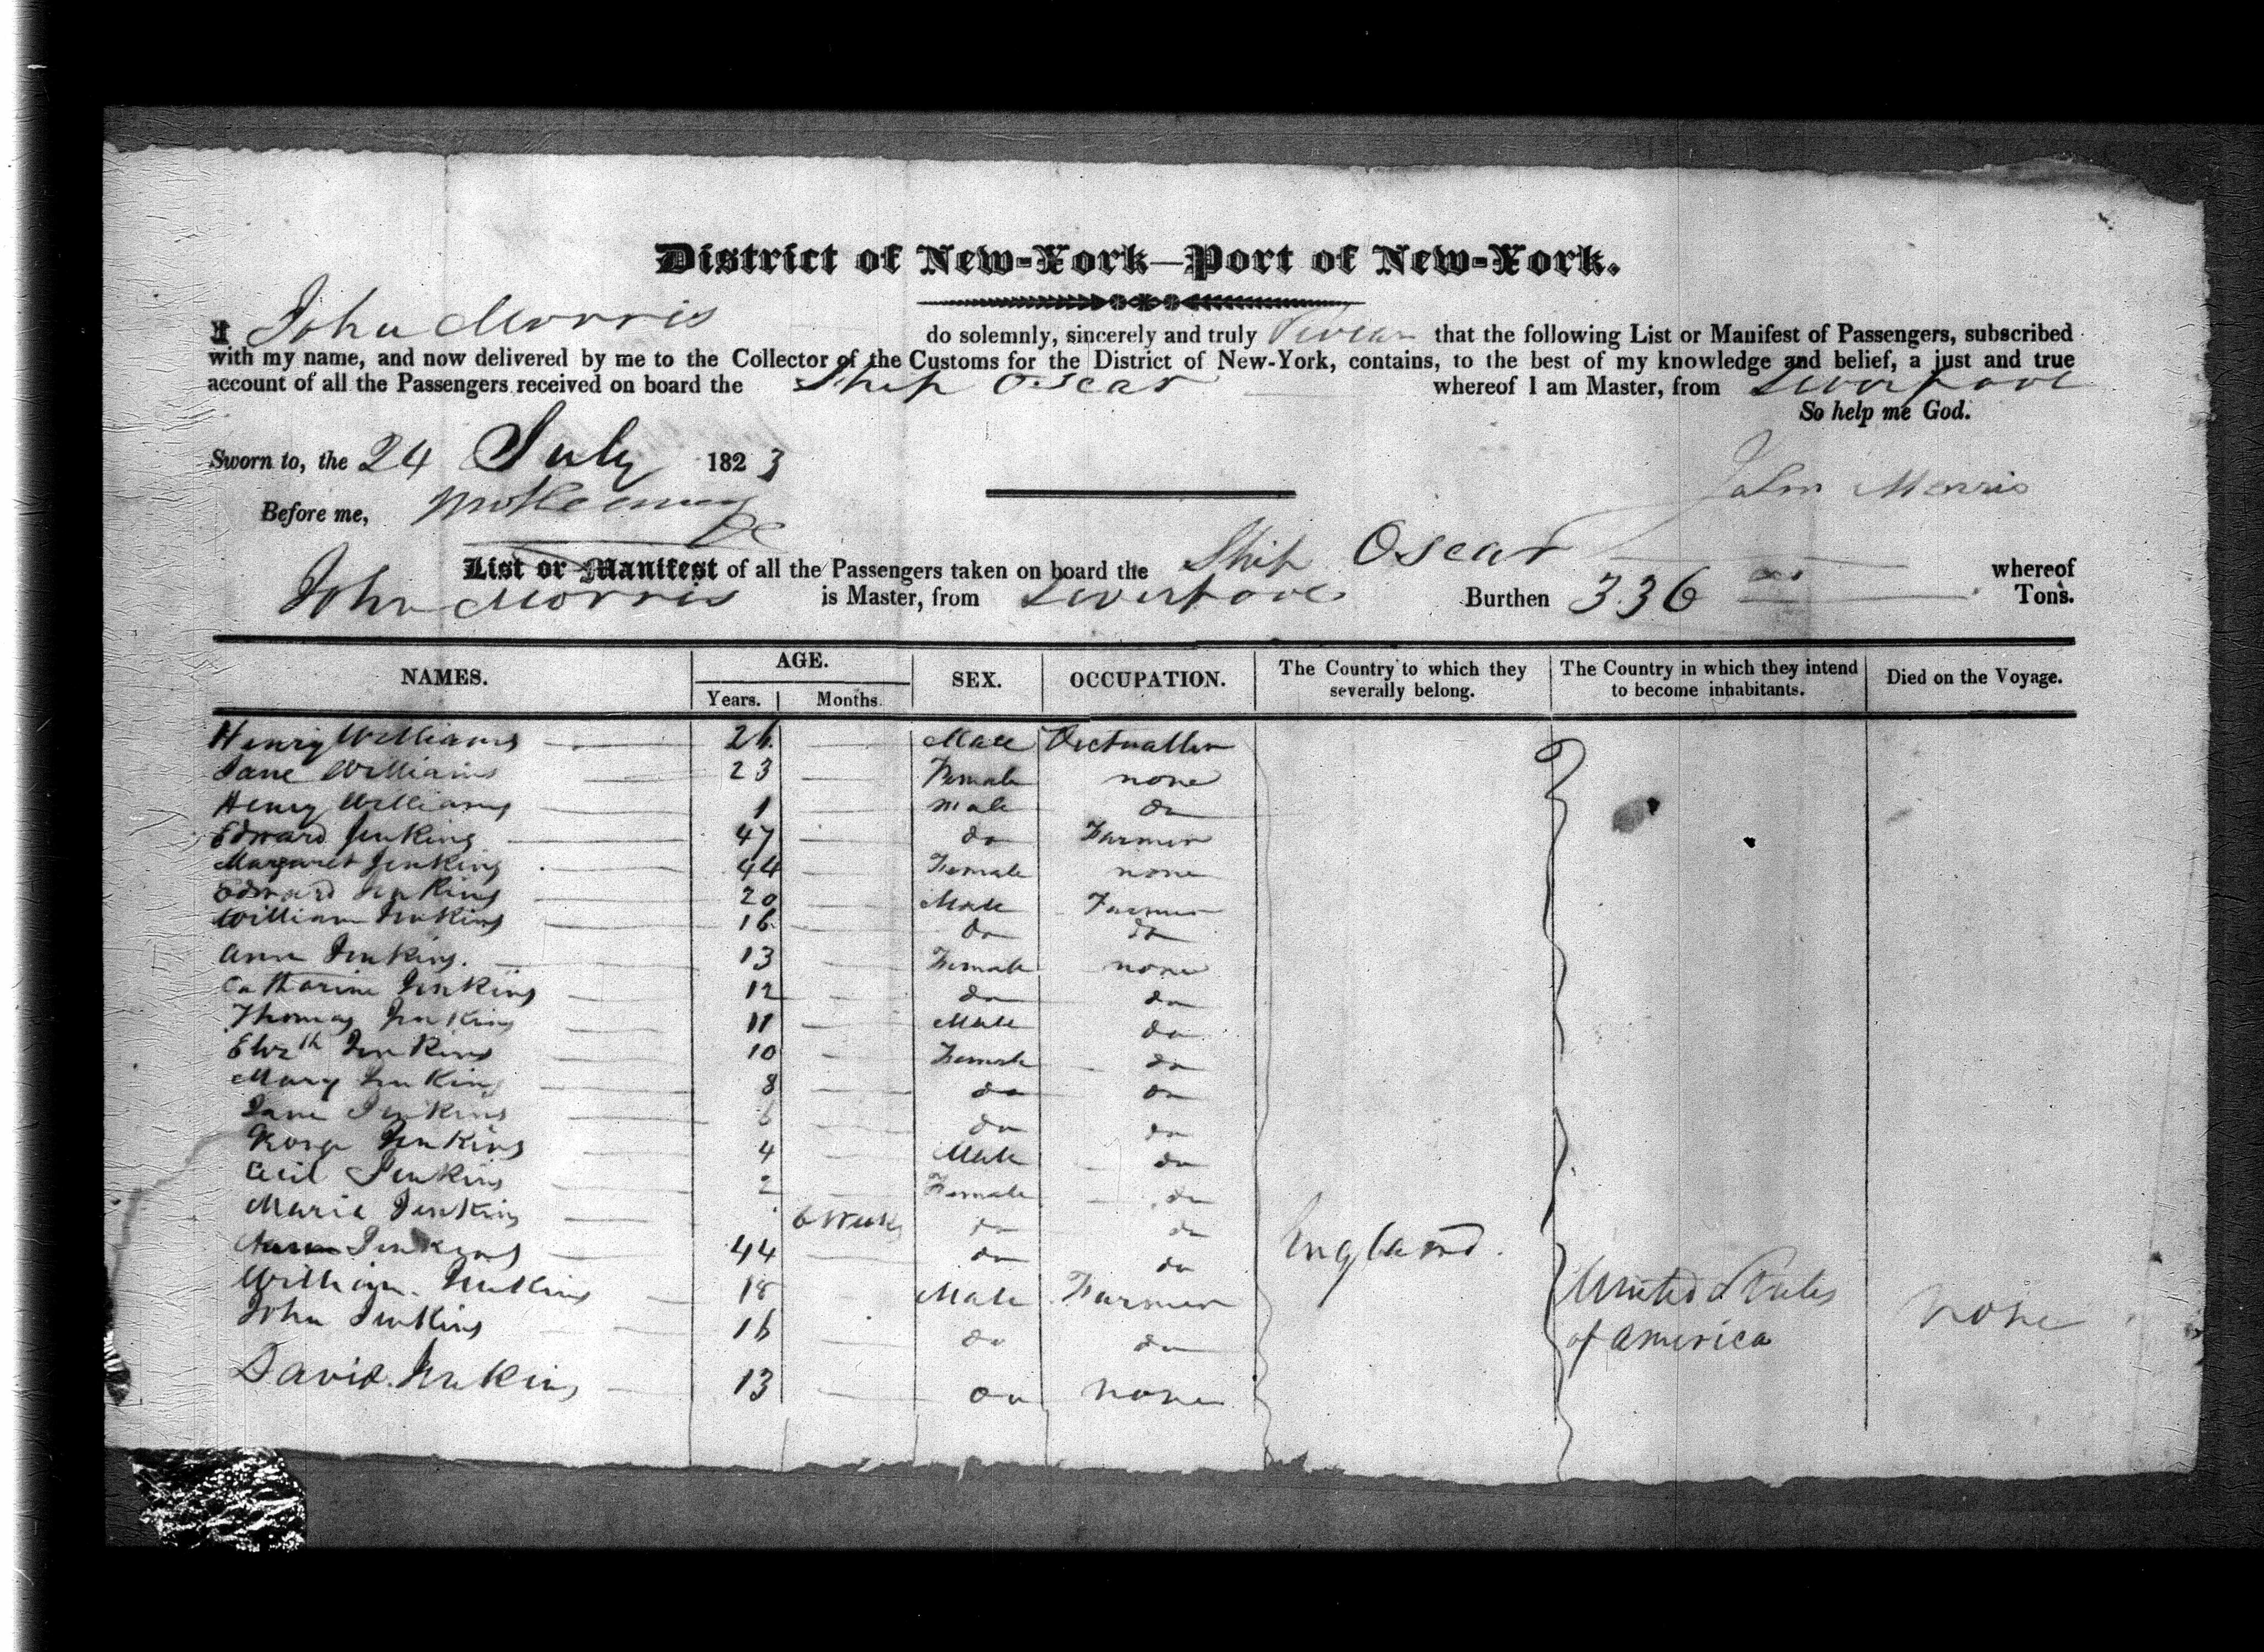 District of New-York—Port of New-York.
I John Morris do solemnly, sincerely and truly swear that the following List or Manifest of Passengers, subscribed
with my name, and now delivered by me to the Collector of the Customs for the District of New-York, contains, to the best of my knowledge and belief, a just and true
account of all the Passengers received on board the Ship Oscar whereof I am Master, from Liverpool
So help me God.
Sworn to, the 24 July 1823
John Morris
Before me,
List or Manifest of all the Passengers taken on board the Ship Oscar whereof
John Morris is Master, from Liverpool Burthen 336 Tons.
NAMES. AGE. SEX. OCCUPATION. The Country to which they severally belong. The Country in which they intend to become inhabitants. Died on the Voyage.
Years. Months.
Henry Williams 26 Male Victualler
Jane Williams 23 Female none
Henry Williams 1 male do
Edward Jenkins 47 do Farmer
Margaret Jenkins 44 Female none
Edward Jenkins 20 Male Farmer
William Jenkins 16 do do
Ann Jenkins. 13 Female none
Catharine Jenkins 12 do do
Thomas Jenkins 11 Male do
Elizth Jenkins 10 Female do
Mary Jenkins 8 do do
Jane Jenkins 6 do do
George Jenkins 4 Male do
Cecil Jenkins 2 Female do
Maria Jenkins 6 Weeks do do
Jenkins 44 do do England.
William Jenkins 18 Male Farmer United States
John Jenkins 16 do do of America none
David Jenkins 13 do none